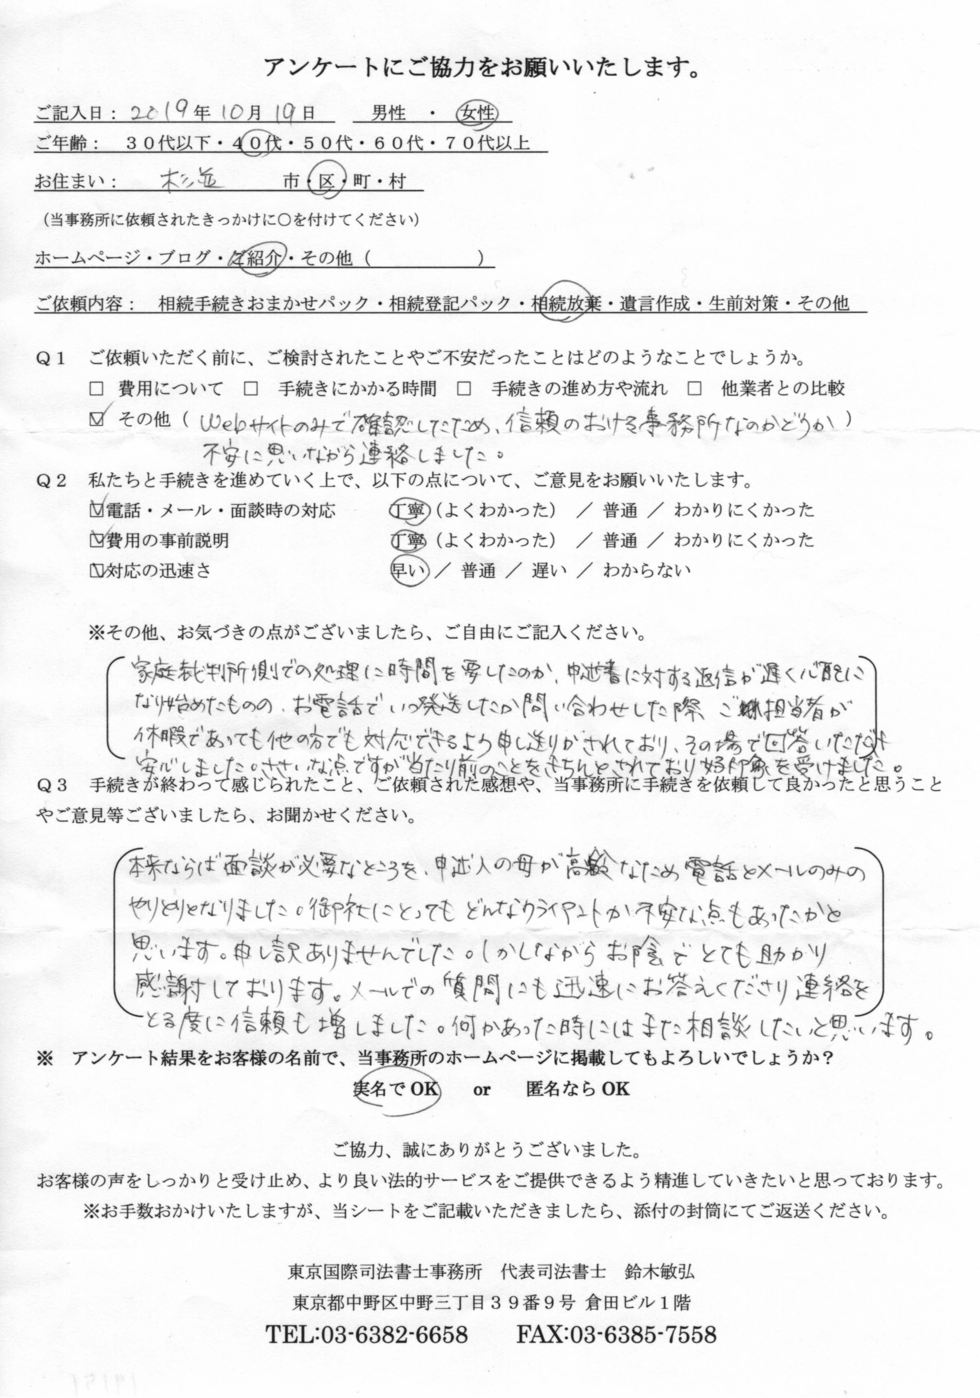 アンケートにご協力をお願いいたします。
ご記入日： 2019年10月19日　男性　・　女性
ご年齢：　３０代以下・４０代・５０代・６０代・７０代以上
お住まい：　杉並　市・区・町・村
（当事務所に依頼されたきっかけに○を付けてください）
ホームページ・ブログ・ご紹介・その他（　　　　　　）
ご依頼内容：　相続手続きおまかせパック・相続登記パック・相続放棄・遺言作成・生前対策・その他
Ｑ１　ご依頼いただく前に、ご検討されたことやご不安だったことはどのようなことでしょうか。
□　費用について　□　手続きにかかる時間　□　手続きの進め方や流れ　□　他業者との比較
☑　その他（ Webサイトのみで確認したため、信頼のおける事務所なのかどうか ）
不安に思いながら連絡しました。
Ｑ２　私たちと手続きを進めていく上で、以下の点について、ご意見をお願いいたします。
☑電話・メール・面談時の対応　丁寧（よくわかった）　／　普通　／　わかりにくかった
☑費用の事前説明　丁寧（よくわかった）　／　普通　／　わかりにくかった
☑対応の迅速さ　早い　／　普通　／　遅い　／　わからない
※その他、お気づきの点がございましたら、ご自由にご記入ください。
家庭裁判所側での処理に時間を要したのか、申述書に対する返信が遅く心配に
なり始めたものの、お電話でいつ発送したか問い合わせした際、ご担当者が
休暇であっても他の方でも対応できるよう申し送りがされており、その場で回答いただき
安心しました。ささいな点ですが当たり前のことをきちんとされており好印象を受けました。
Ｑ３　手続きが終わって感じられたこと、ご依頼された感想や、当事務所に手続きを依頼して良かったと思うこと
やご意見等ございましたら、お聞かせください。
本来ならば面談が必要なところを、申述人の母が高齢なため電話とメールのみの
やりとりとなりました。御社にとってもどんなクライアントか不安な点もあったかと
思います。申し訳ありませんでした。しかしながらお陰でとても助かり
感謝しております。メールでの質問にも迅速にお答えくださり連絡を
とる度に信頼も増しました。何かあった時にはまた相談したいと思います。
※　アンケート結果をお客様の名前で、当事務所のホームページに掲載してもよろしいでしょうか？
実名でOK　or　匿名ならOK
ご協力、誠にありがとうございました。
お客様の声をしっかりと受け止め、より良い法的サービスをご提供できるよう精進していきたいと思っております。
※お手数おかけいたしますが、当シートをご記載いただきましたら、添付の封筒にてご返送ください。
東京国際司法書士事務所　代表司法書士　鈴木敏弘
東京都中野区中野三丁目３９番９号 倉田ビル１階
TEL:03-6382-6658　FAX:03-6385-7558